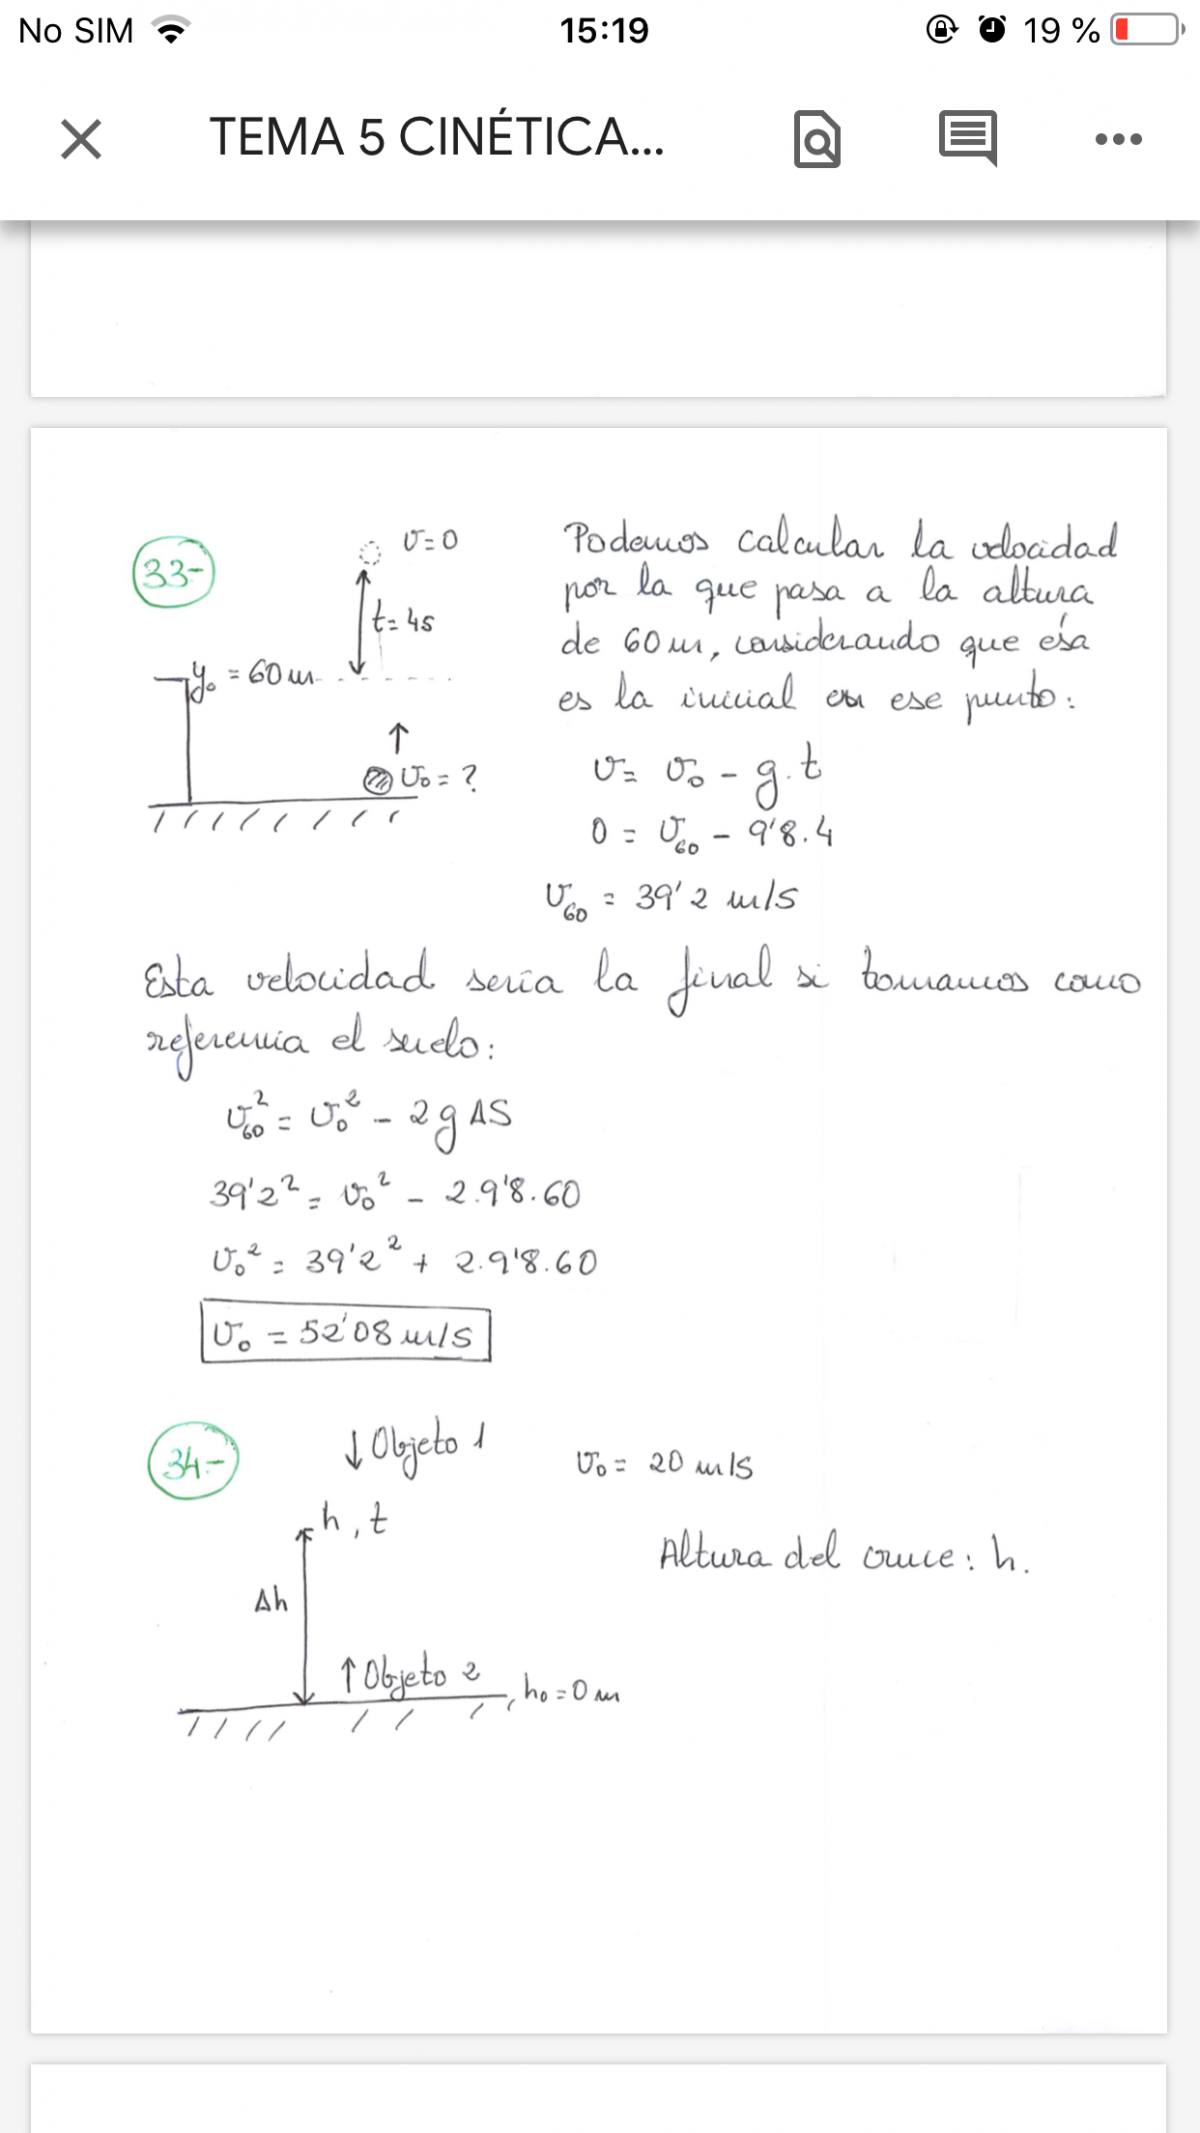 No SIM 15:19 19 %
TEMA 5 CINÉTICA...
33-
v=0
t=4s
y₀ = 60m
v₀ = ?
Podemos calcular la velocidad
por la que pasa a la altura
de 60m, considerando que esa
es la inicial en ese punto:
v = v₀ - g.t
0 = v₆₀ - 9'8.4
v₆₀ = 39'2 m/s
Esta velocidad sería la final si tomamos como
referencia el suelo:
v₆₀² = v₀² - 2g ΔS
39'2² = v₀² - 2.9'8.60
v₀² = 39'2² + 2.9'8.60
v₀ = 52'08 m/s
34.-
↓ Objeto 1
v₀ = 20 m/s
h, t
Altura del cruce: h.
Δh
↑ Objeto 2
, h₀ = 0 m